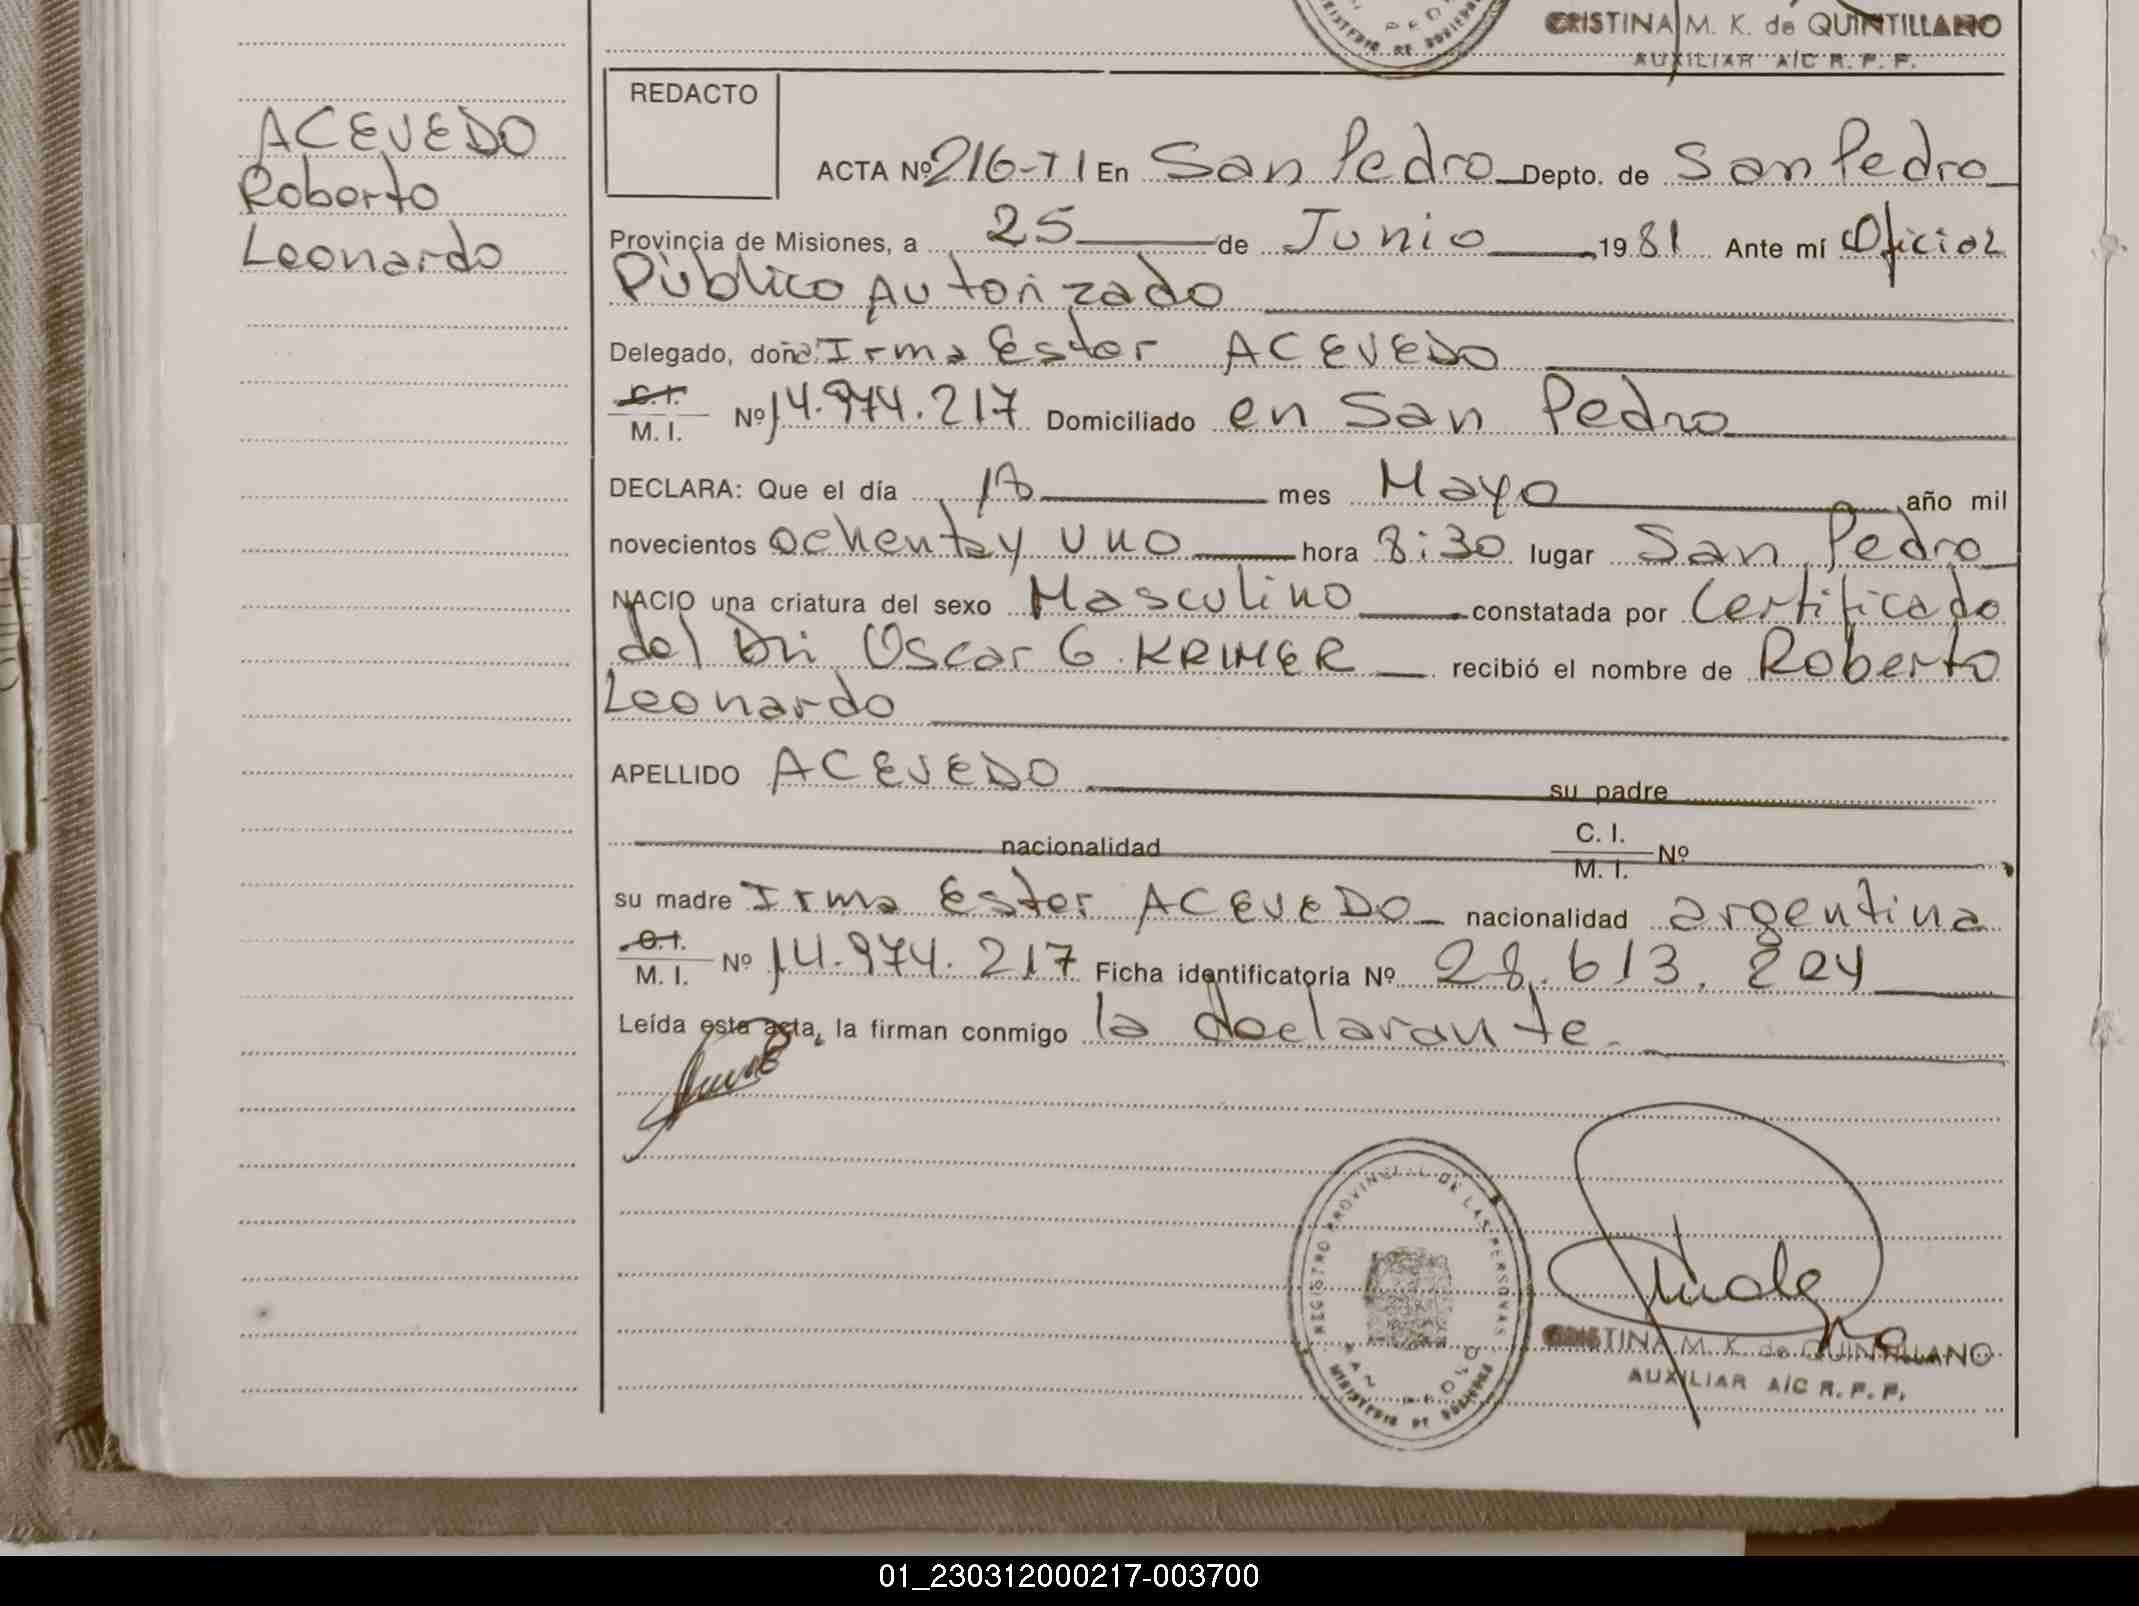 CRISTINA M. K. de QUINTILLANO
AUXILIAR A/C R. P. P.
ACEVEDO
Roberto
Leonardo
REDACTO
ACTA Nº 216-71 En San Pedro Depto. de San Pedro
Provincia de Misiones, a 25 de Junio 1981 Ante mí Oficial
Público Autorizado
Delegado, doña Irma Ester ACEVEDO
C.I.
M. I. Nº 14.974.217 Domiciliado en San Pedro
DECLARA: Que el día mes Mayo año mil
novecientos ochenta y uno hora 8:30 lugar San Pedro
NACIO una criatura del sexo Masculino constatada por Certificado
del Dr. Oscar G. KRIMER recibió el nombre de Roberto
Leonardo
APELLIDO ACEVEDO su padre
nacionalidad C. I.
M. I. Nº
su madre Irma Ester ACEVEDO nacionalidad argentina
C.I.
M. I. Nº 14.974.217 Ficha identificatoria Nº 28.613.
Leída esta acta, la firman conmigo la declarante.
REGISTRO PROVINCIAL DE LAS PERSONAS
SAN PEDRO
MINISTERIO DE GOBIERNO
CRISTINA M. K. de QUINTILLANO
AUXILIAR A/C R. P. P.
01_230312000217-003700